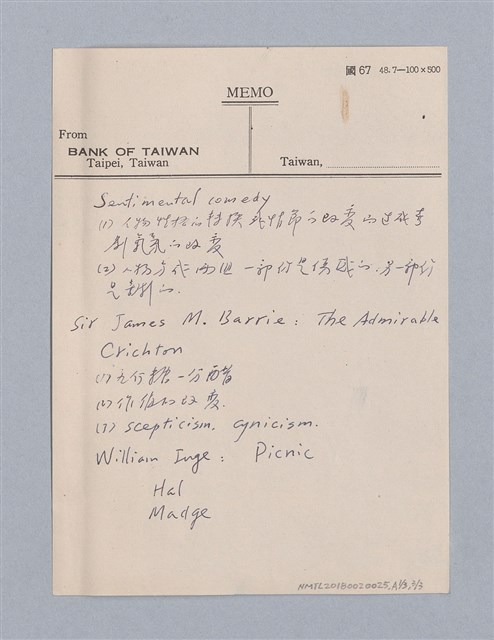 國 67 48.7—100×500
MEMO
From
BANK OF TAIWAN
Taipei, Taiwan
Taiwan,
Sentimental comedy
(1) 人物性格的轉換或情節的改變的造成喜
劇氣氛的改變
(2) 人物分成兩組 一部份是傷感的, 另一部份
是喜劇的.
Sir James M. Barrie: The Admirable
Crichton
(1) 九分糖一分醋
(2) 作值的改變.
(3) scepticism. cynicism.
William Inge: Picnic
Hal
Madge
NMTL20180020025, A1/3, 2/3